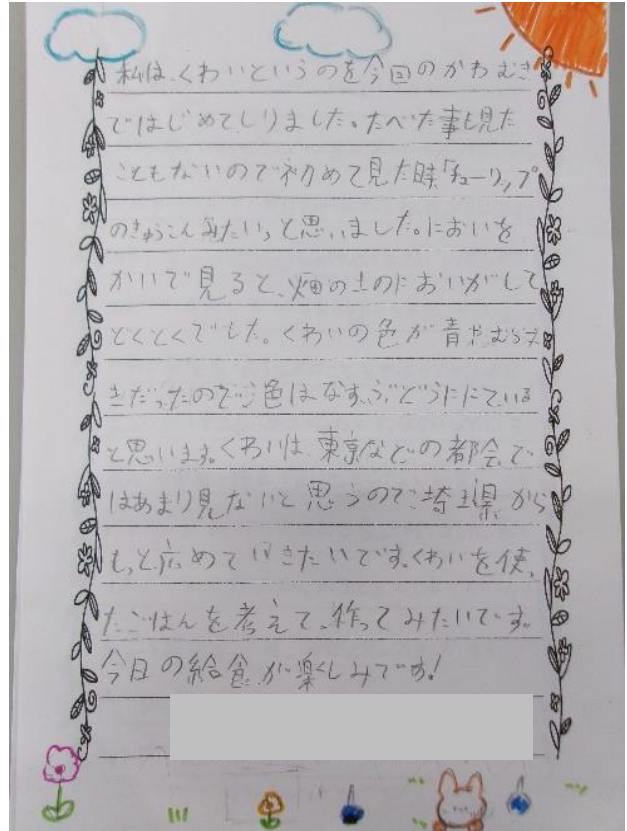 私は、くわいというのを今回のかわむき
ではじめてしりました。たべた事も見た
こともないので初めて見た時、「チューリップ
のきゅうこんみたい」と思いました。においを
かいで見ると、畑の土のにおいがして
どくとくでした。くわいの色が青やむらさ
きだったので、色はなす、ぶどうににている
と思います。くわいは、東京などの都会で
はあまり見ないと思うので、埼玉県から
もっと広めていきたいです。くわいを使っ
たごはんを考えて、作ってみたいです。
今日の給食が楽しみです!